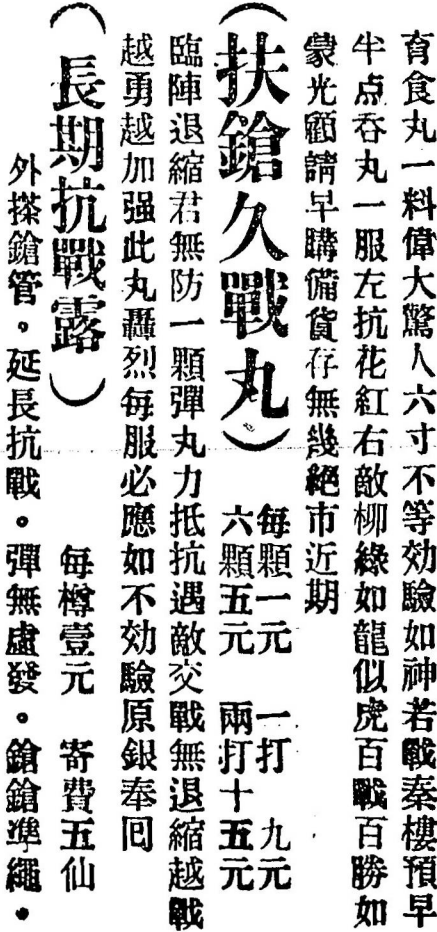 育食丸一料偉大驚人六寸不等効驗如神若戰秦樓預早
半点吞丸一服左抗花紅右敵柳綠如龍似虎百戰百勝如
蒙光顧請早購備貨存無幾絕市近期
(扶鎗久戰丸)
每顆一元 一打 九元
六顆五元 兩打十五元
臨陣退縮君無防一顆彈丸力抵抗遇敵交戰無退縮越戰
越勇越加强此丸轟烈每服必應如不効驗原銀奉囘
(長期抗戰露) 每樽壹元 寄費五仙
外搽鎗管。延長抗戰。彈無虛發。鎗鎗準繩。